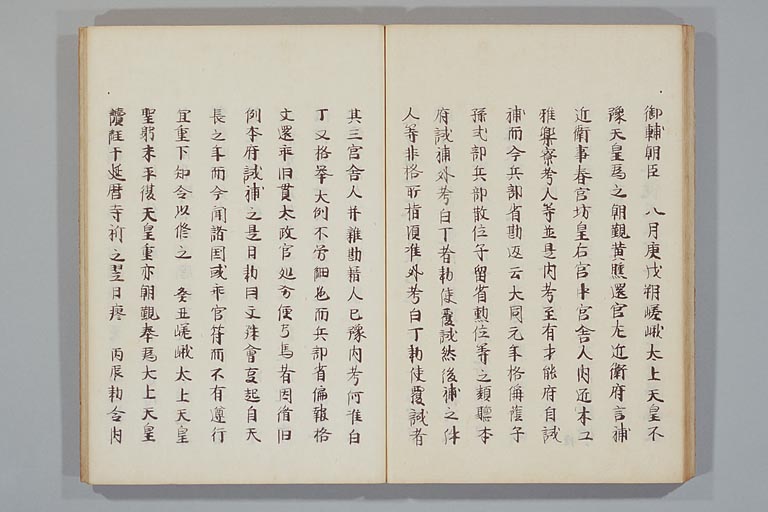 御輔朝臣　八月庚戌朔嵯峨太上天皇不
豫天皇為之朝覲黄昏還宮左近衛府言補
近衛事春宮坊皇后宮中宮舎人内匠木工
雅樂寮考人等並是内考至有才能府自試
補而今兵部省勘返云大同元年格偁蔭子
孫式部兵部散位子留省勲位等之類聽本
府試補外考白丁者勅使覆試然後補之件
人等非格所指須准外考白丁勅使覆試者
其三宮舎人并雜勘籍人已豫内考何准白
丁又格挙大例不労細色而兵部省偏執格
文還乖旧貫太政官処分便弓馬者因循旧
例本府試補之是日勅曰文殊會聿起自天
長之年而今聞諸国或乖官符而不有遵行
宜重下知令以修之　癸丑嵯峨太上天皇
聖躬未平復天皇重亦朝覲奉為太上天皇
讀経于延暦寺祈之翌日瘳　丙辰勅令内